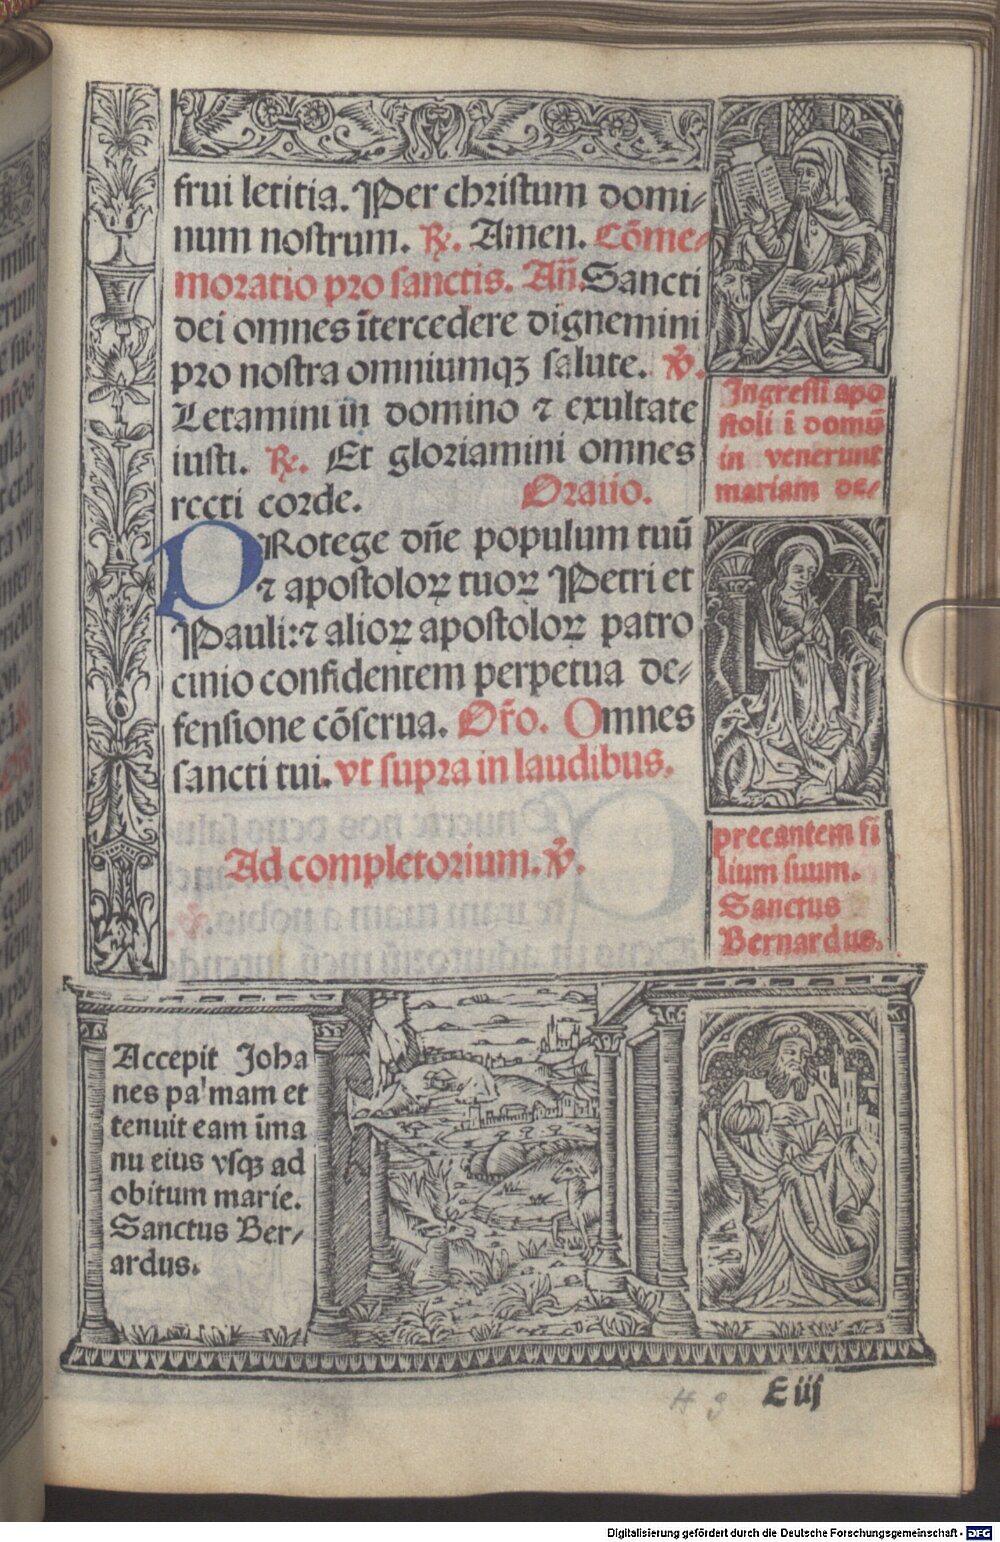 frui letitia. Per christum domi-
num nostrum. ℟. Amen. Cõme-
moratio pro sanctis. Añ. Sancti
dei omnes ĩtercedere dignemini
pro nostra omniumqꝫ salute. ℣.
Letamini in domino ⁊ exultate
iusti. ℟. Et gloriamini omnes
recti corde. Oratio.
PRotege dñe populum tuũ
⁊ apostoloꝝ tuoꝝ Petri et
Pauli: ⁊ alioꝝ apostoloꝝ patro
cinio confidentem perpetua de-
fensione cõserua. Oro. Omnes
sancti tui. vt supra in laudibus.
Ad completorium. ℣.
Ingressi apo
stoli ĩ domũ
in venerunt
mariam de-
precantem fi
lium suum.
Sanctus
Bernardus.
Accepit Joha
nes palmam et
tenuit eam ĩma
nu eius vsqꝫ ad
obitum marie.
Sanctus Ber-
ardus.
E iij
H 3
Digitalisierung gefördert durch die Deutsche Forschungsgemeinschaft - DFG